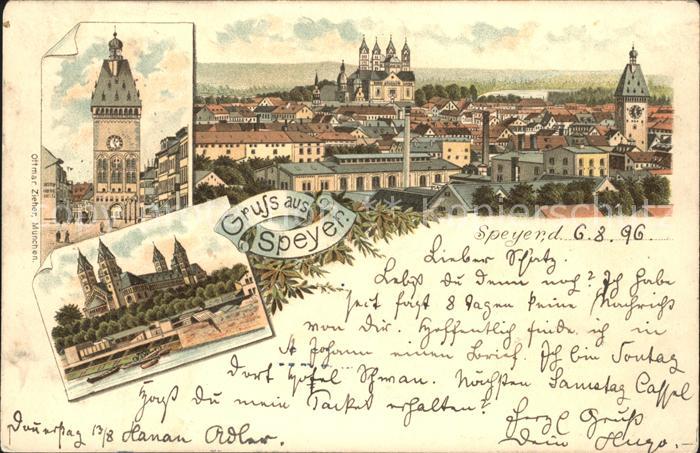 Ottmar Zieher, München.
Gruss aus
Speyer
Speyer, d. 6.8.96
Lieber Schatz.
Lebst du denn noch? Ich habe
seit fast 8 Tagen keine Nachricht
von dir. Hoffentlich finde ich in
St Johann einen Brief. Ich bin Sontag
dort Hotel Schwan. Nächsten Samstag Cassel
Hast du mein Packet erhalten?
Herzl Gruß
Dein Hugo.
Donerstag 13/8 Hanau Adler.